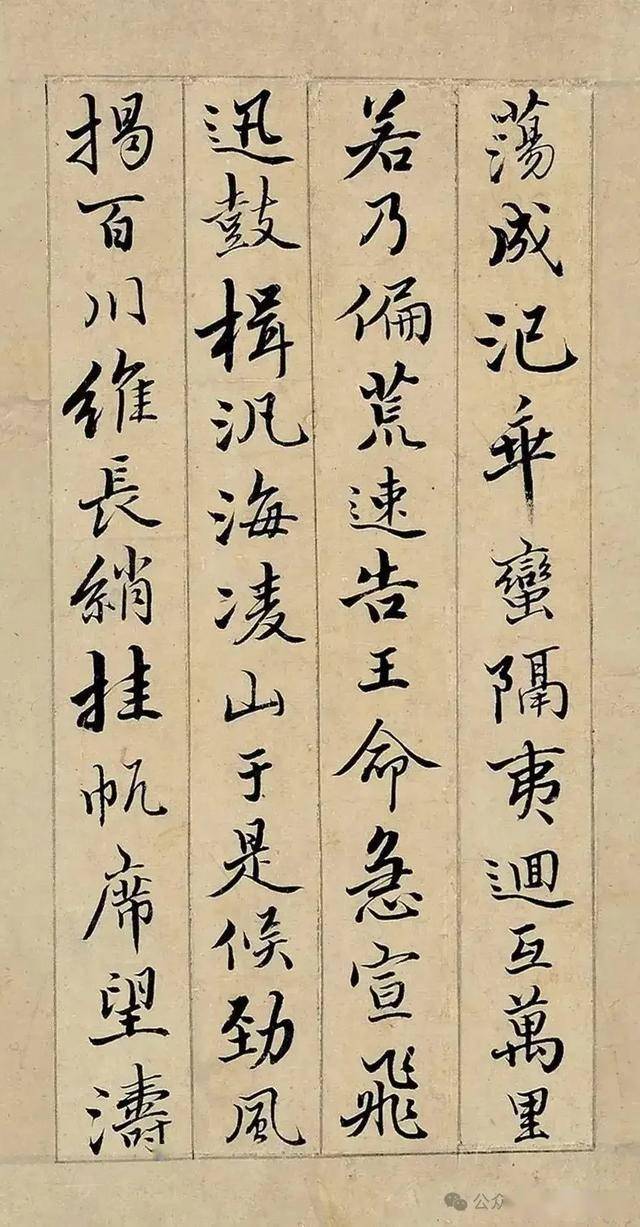 蕩成汜乖蠻隔夷迴互萬里
若乃偏荒速告王命急宣飛
迅鼓楫汎海凌山于是候勁風
揭百川維長綃挂帆席望濤
公众